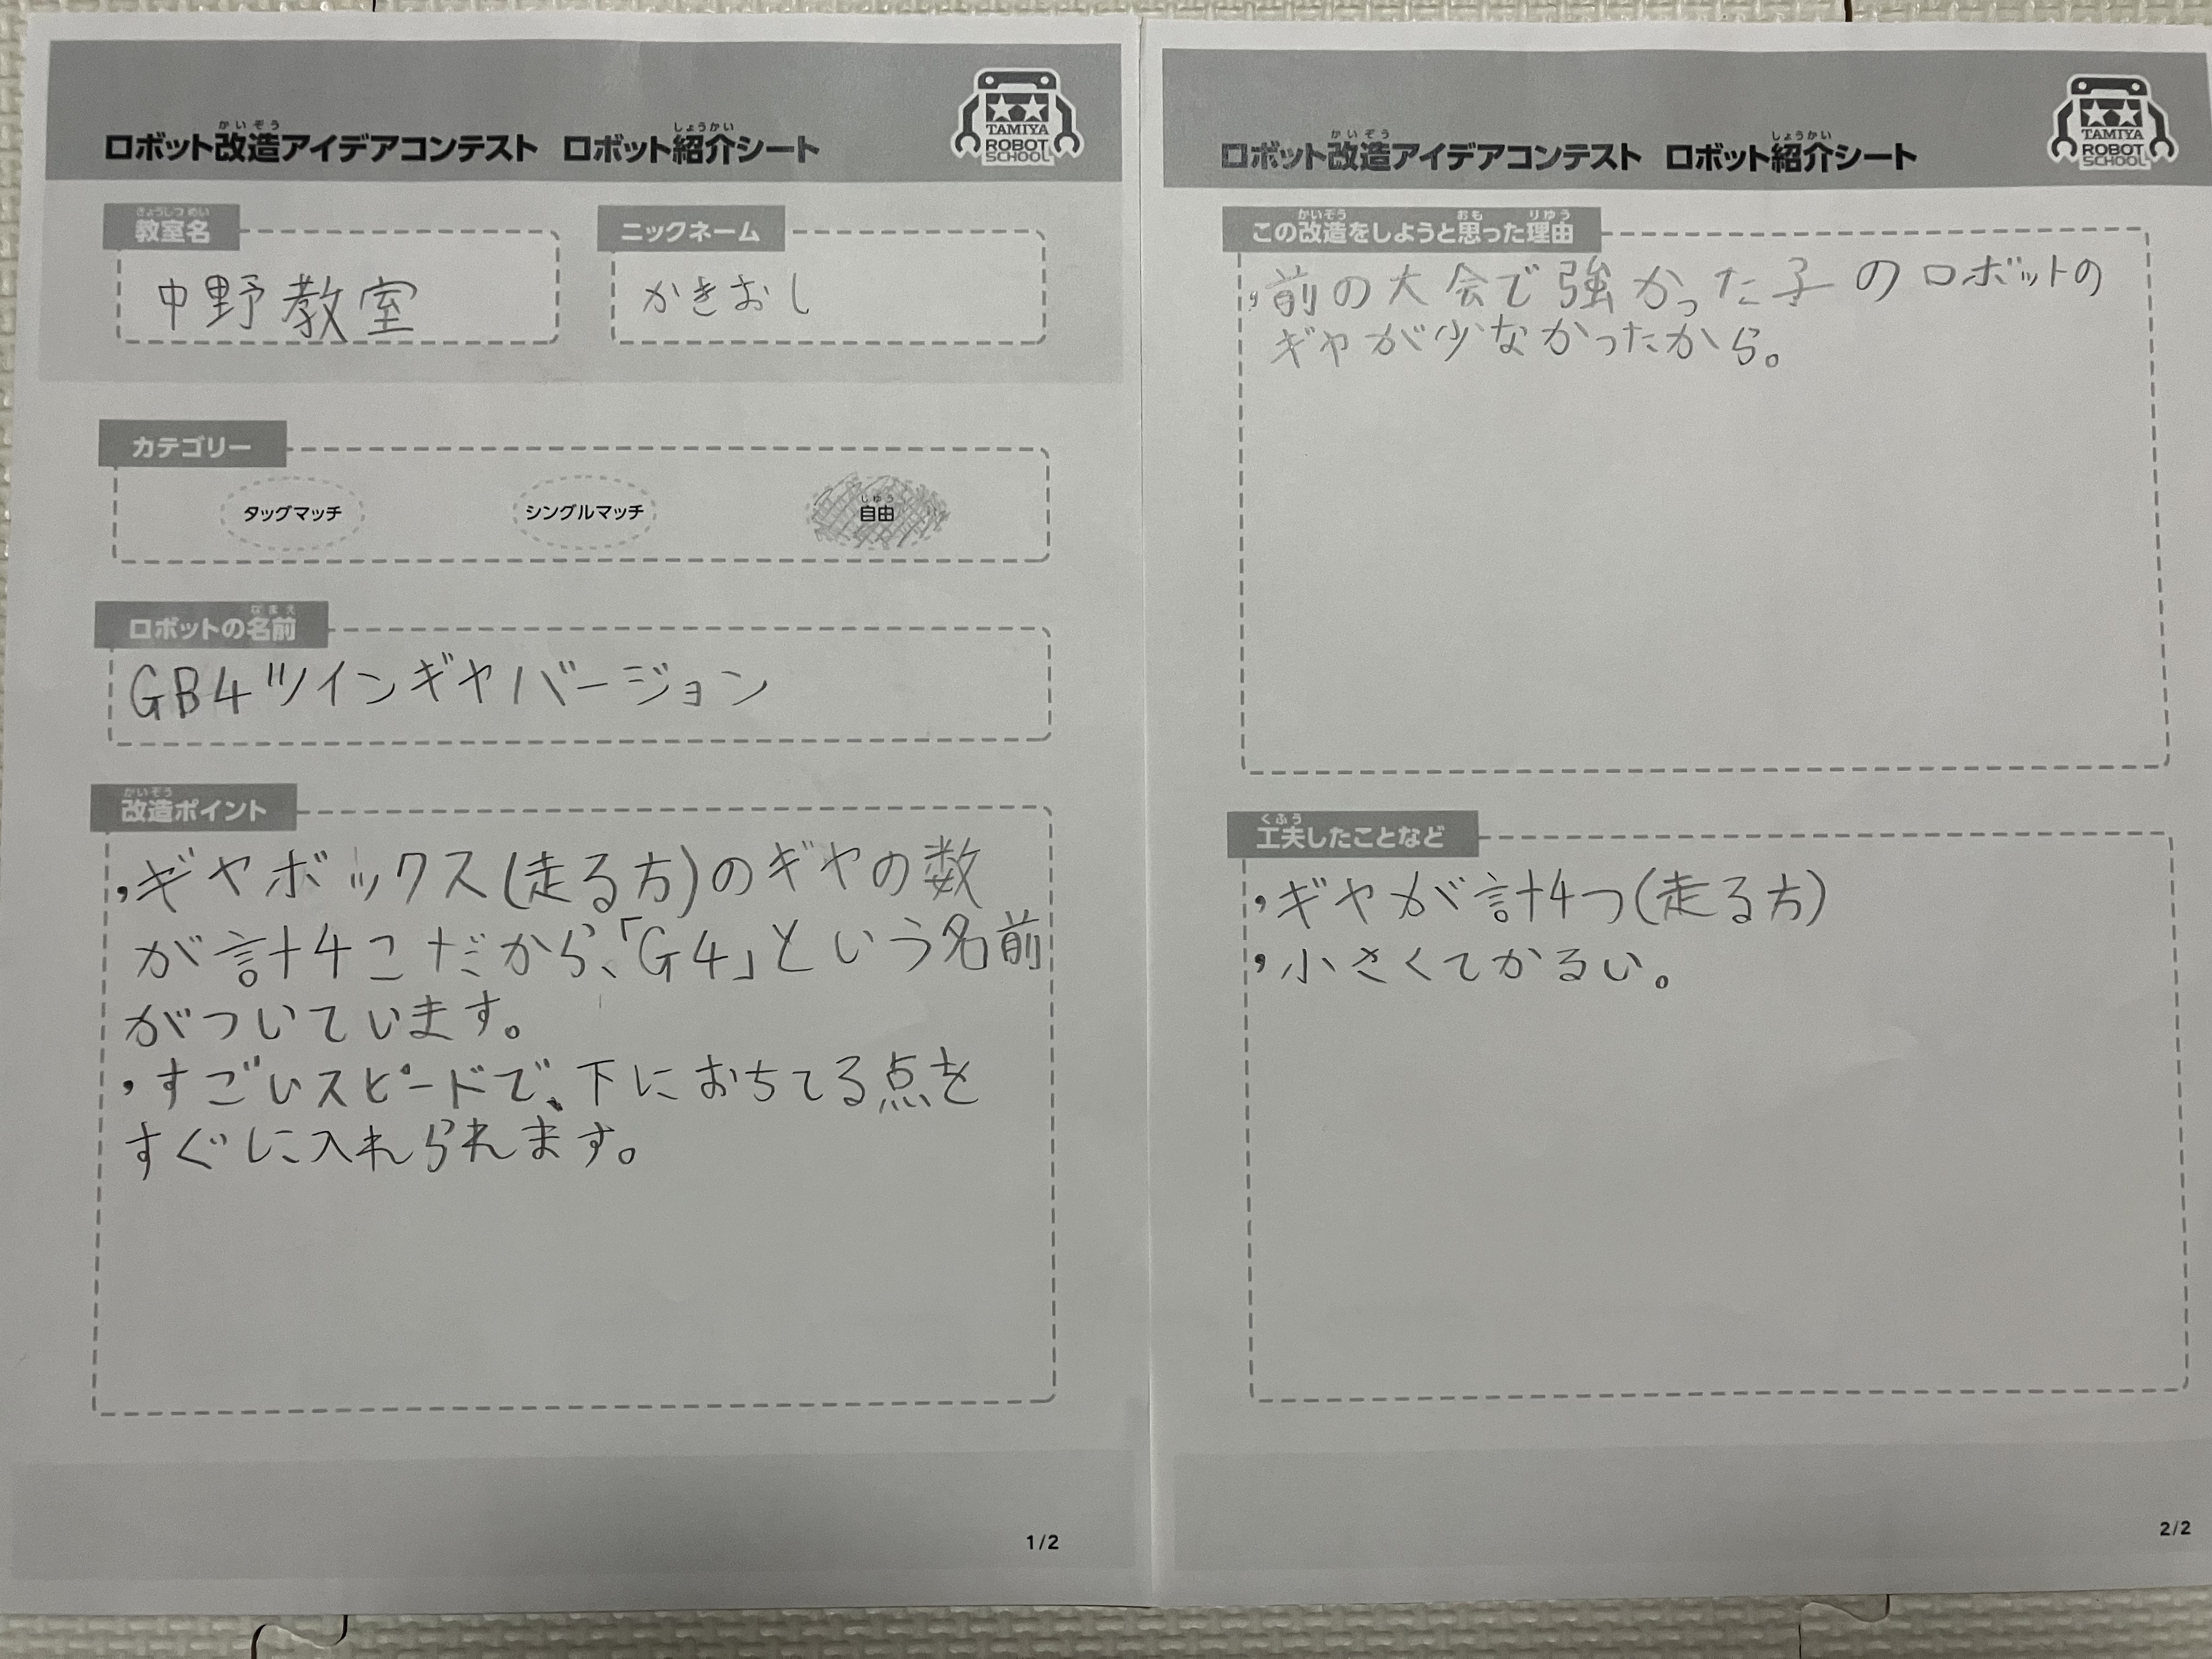 ロボット改造アイデアコンテスト ロボット紹介シート
かいぞう
しょうかい
TAMIYA
ROBOT
SCHOOL
教室名
きょうしつ めい
中野教室
ニックネーム
かきおし
カテゴリー
タッグマッチ
シングルマッチ
じゆう
自由
ロボットの名前
なまえ
GB4ツインギヤバージョン
かいぞう
改造ポイント
,ギヤボックス(走る方)のギヤの数
が計4こだから、「G4」という名前
がついています。
,すごいスピードで、下におちてる点を
すぐに入れられます。
1/2
ロボット改造アイデアコンテスト ロボット紹介シート
かいぞう
しょうかい
TAMIYA
ROBOT
SCHOOL
かいぞう
おも
りゆう
この改造をしようと思った理由
,前の大会で強かった子のロボットの
ギヤが少なかったから。
くふう
工夫したことなど
,ギヤが計4つ(走る方)
,小さくてかるい。
2/2